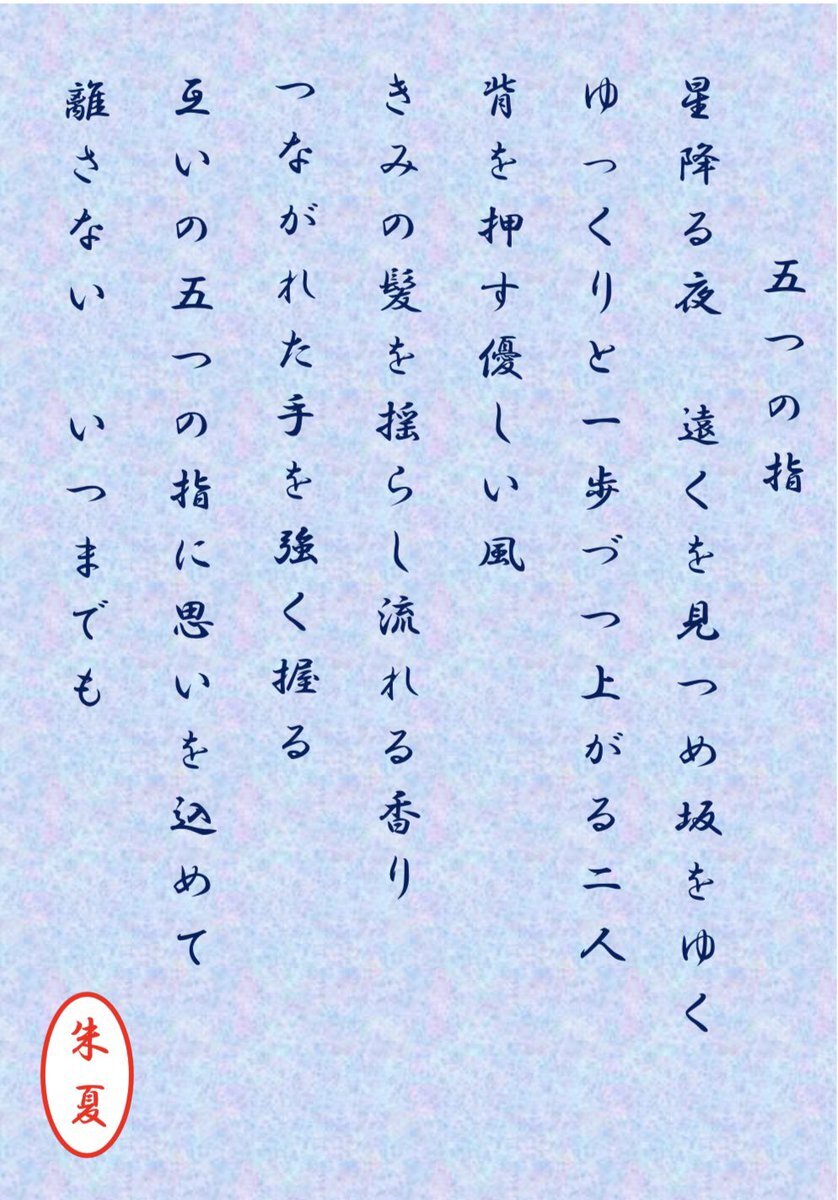 五つの指
星降る夜　遠くを見つめ坂をゆく
ゆっくりと一歩づつ上がる二人
背を押す優しい風
きみの髪を揺らし流れる香り
つながれた手を強く握る
互いの五つの指に思いを込めて
離さない　いつまでも
朱夏